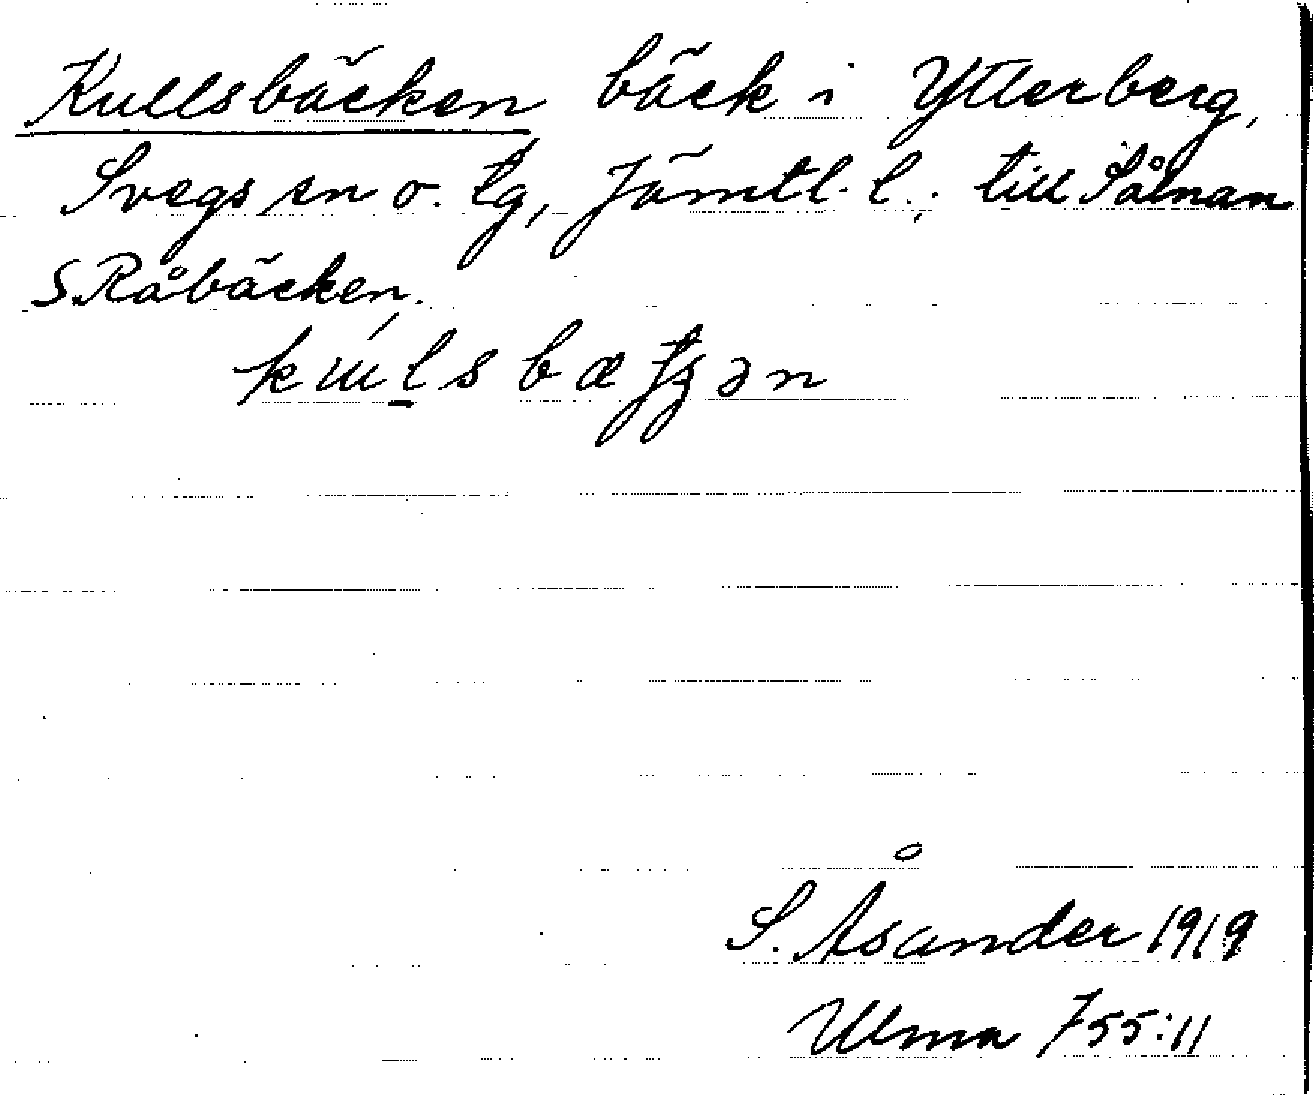 Kullsbäcken bäck i Ytterberg,
Svegs sn o. tg, Jämtl. l. till Sålnan
S.Råbäcken.
S. Åsander 1919
Ulma 755:11